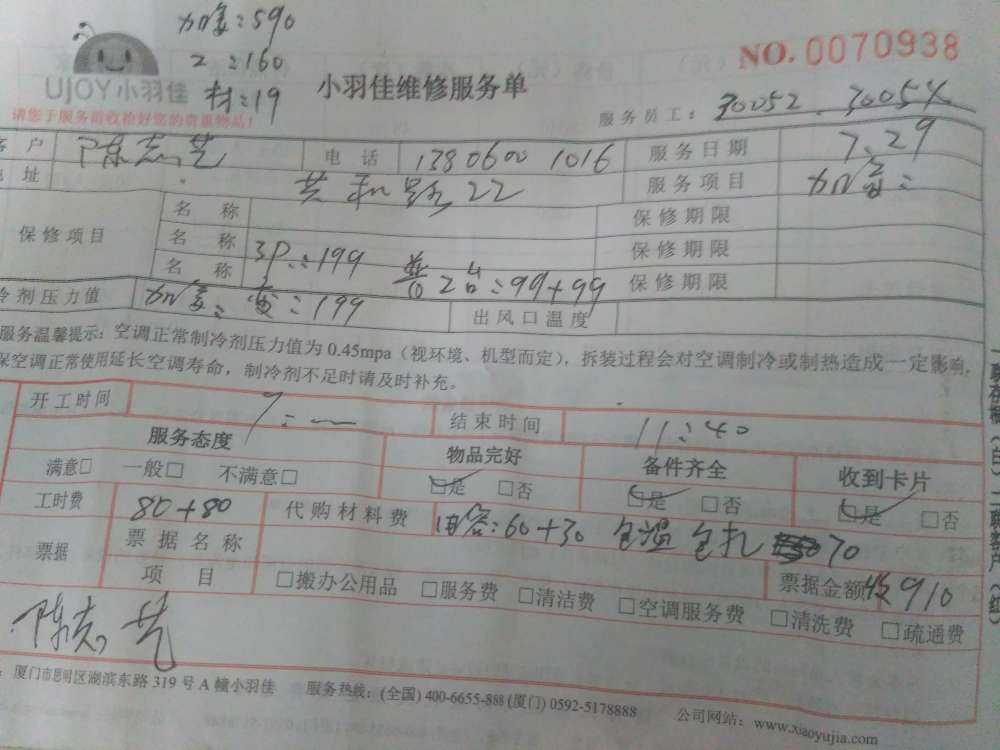 加氟:590
工:160
材:19
UJOY小羽佳
小羽佳维修服务单
NO.0070938
请您于服务前收拾好您的贵重物品!
服务员工: 30052 . 30054
客户 陈志艺 电话 1380600 1016 服务日期 7.29
地址 22 服务项目 加氟:
保修项目 名称 保修期限
名称 保修期限
名称 3P:199 99+99 保修期限
冷剂压力值 加氟: 199 出风口温度
服务温馨提示: 空调正常制冷剂压力值为0.45mpa(视环境、机型而定),拆装过程会对空调制冷或制热造成一定影响,
保空调正常使用延长空调寿命,制冷剂不足时请及时补充。
开工时间 结束时间 11:40
服务态度 物品完好 备件齐全 收到卡片
满意□ 一般□ 不满意□ □是 □否 □是 □否 □是 □否
工时费 80+80 代购材料费 60+30 包扎 70
票据 票据名称
项目 □搬办公用品 □服务费 □清洁费 □空调服务费 □清洗费 □疏通费
票据金额 收910
陈志艺
: 厦门市思明区湖滨东路319号A幢小羽佳 服务热线: (全国) 400-6655-888 (厦门) 0592-5178888 公司网站: www.xiaoyujia.com